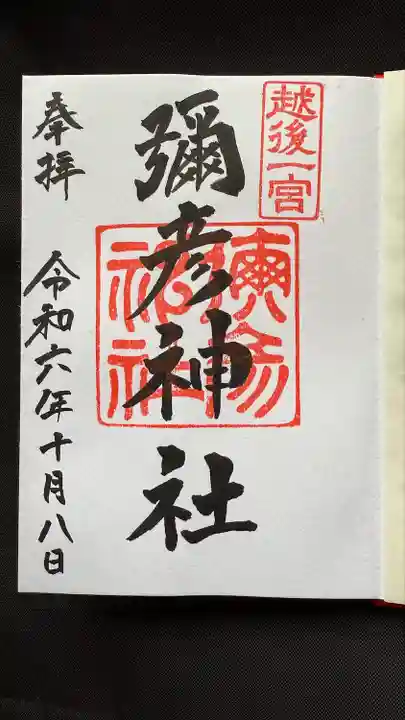 越後一宮
彌彦神社
彌彦神社
奉拝
令和六年十月八日